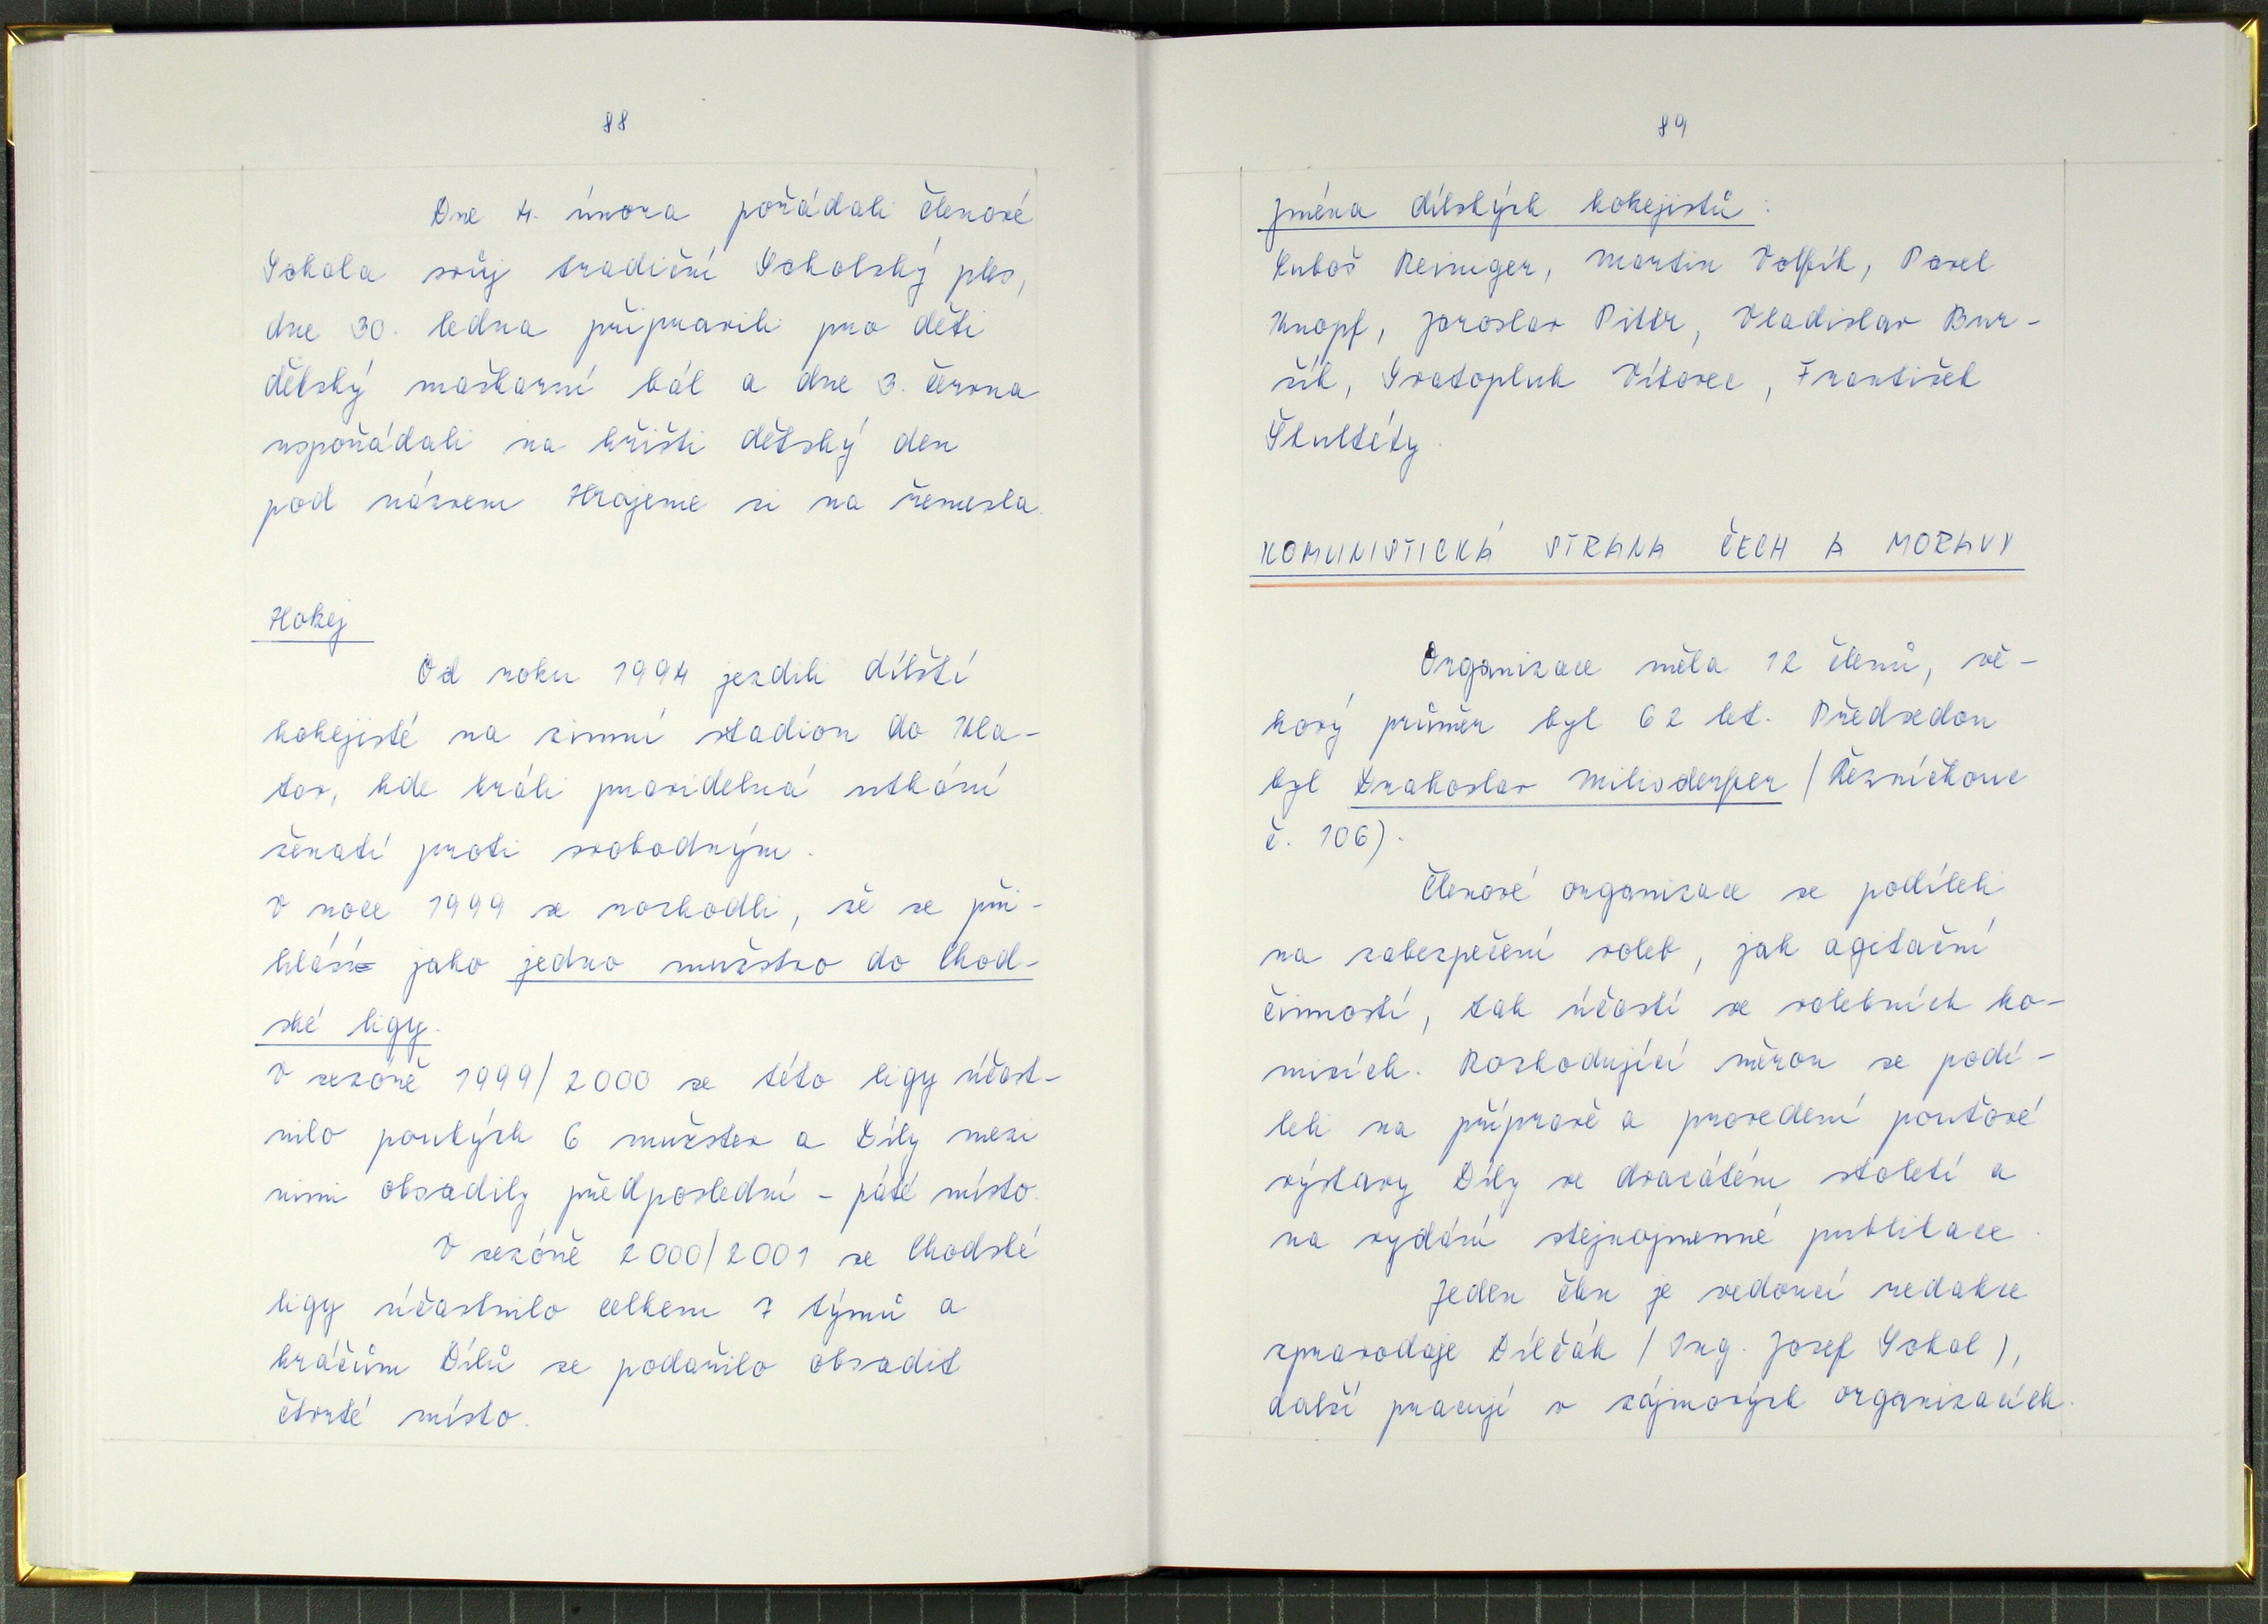 88
Dne 4. února pořádali členové
Sokola svůj tradiční Sokolský ples,
dne 30. ledna připravili pro děti
dětský maškarní bál a dne 3. června
uspořádali na hřišti dětský den
pod názvem Hrajeme si na řemesla.
Hokej
Od roku 1994 jezdili dílští
hokejisté na zimní stadion do Kla-
tov, kde hráli pravidelná utkání
ženatí proti svobodným.
V roce 1999 se rozhodli, že se při-
hlásí jako jedno mužstvo do Chod-
ské ligy.
V sezóně 1999/2000 se této ligy účast-
nilo pouhých 6 mužstev a Díly mezi
nimi obsadily předposlední - páté místo.
V sezóně 2000/2001 se Chodské
ligy účastnilo celkem 7 týmů a
hráčům Dílů se podařilo obsadit
čtvrté místo.
89
Jména dílských hokejistů:
Luboš Reiniger, Martin Volfík, Pavel
Knopf, Jaroslav Pittr, Vladislav Bur-
žík, Svatopluk Vítovec, František
Škultéty.
KOMUNISTICKÁ STRANA ČECH A MORAVY
Organizace měla 12 členů, vě-
kový průměr byl 62 let. Předsedou
byl Drahoslav Milisderfer (Řezníčkovc
č. 106).
Členové organizace se podíleli
na zabezpečení voleb, jak agitační
činností, tak účastí ve volebních ko-
misích. Rozhodující měrou se podí-
leli na přípravě a provedení pouťové
výstavy Díly ve dvacátém století a
na vydání stejnojmenné publikace.
Jeden člen je vedoucí redakce
zpravodaje Dílčák (Ing. Josef Sokol),
další pracují v zájmových organizacích.